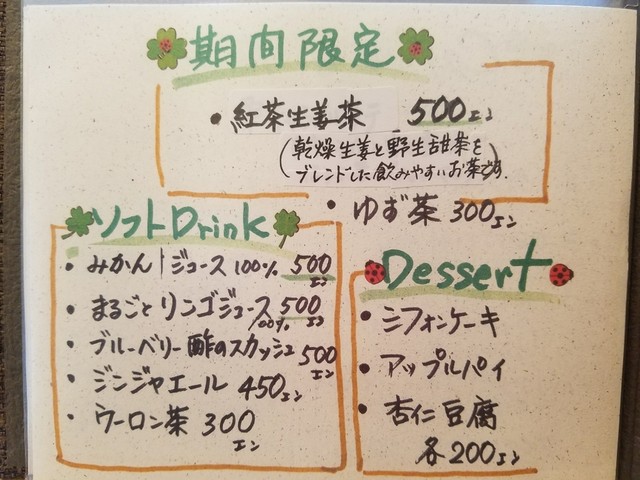 期間限定
・紅茶生姜茶 500エン
(乾燥生姜と野生甜茶を
ブレンドした飲みやすいお茶です.)
・ゆず茶 300エン
ソフトDrink
・みかんジュース 100% 500エン
・まるごとリンゴジュース 100% 500エン
・ブルーベリー酢のスカッシュ 500エン
・ジンジャエール 450エン
・ウーロン茶 300エン
Dessert
・シフォンケーキ
・アップルパイ
・杏仁豆腐
各200エン